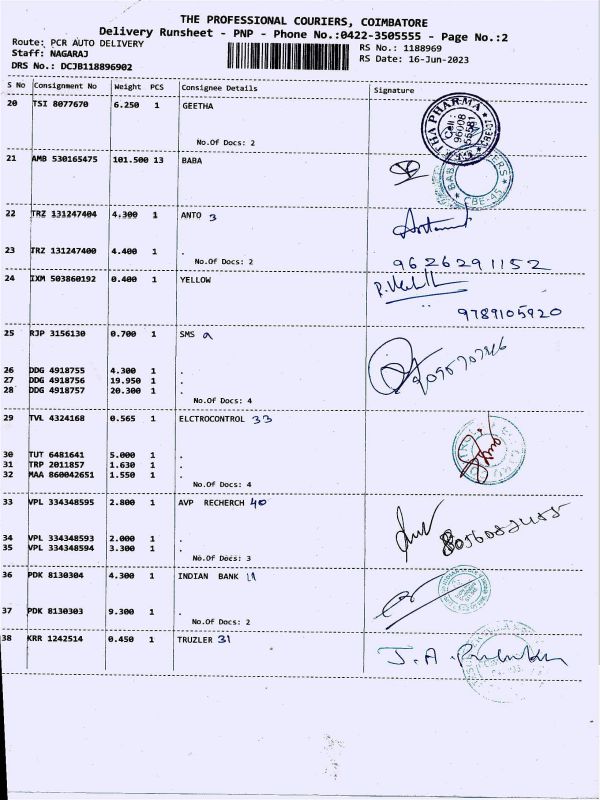 THE PROFESSIONAL COURIERS, COIMBATORE
Delivery Runsheet - PNP - Phone No.:0422-3505555 - Page No.:2
Route: PCR AUTO DELIVERY
Staff: NAGARAJ
DRS No.: DCJB118896902
RS No.: 1188969
RS Date: 16-Jun-2023
S No Consignment No Weight PCS Consignee Details Signature
20 TSI 8077670 6.250 1 GEETHA
No.Of Docs: 2
21 AMB 530165475 101.500 13 BABA
22 TRZ 131247404 4.300 1 ANTO 3
23 TRZ 131247400 4.400 1 .
No.Of Docs: 2
9626291152
24 IXM 503860192 0.400 1 YELLOW
9789105920
25 RJP 3156130 0.700 1 SMS a
26 DDG 4918755 4.300 1 .
27 DDG 4918756 19.950 1 .
28 DDG 4918757 20.300 1 .
No.Of Docs: 4
29 TVL 4324168 0.565 1 ELCTROCONTROL 33
30 TUT 6481641 5.000 1 .
31 TRP 2011857 1.630 1 .
32 MAA 860042651 1.550 1 .
No.Of Docs: 4
33 VPL 334348595 2.800 1 AVP RECHERCH 40
34 VPL 334348593 2.000 1 .
35 VPL 334348594 3.300 1 .
No.Of Docs: 3
36 PDK 8130304 4.300 1 INDIAN BANK 11
37 PDK 8130303 9.300 1 .
No.Of Docs: 2
38 KRR 1242514 0.450 1 TRUZLER 31
J.A.